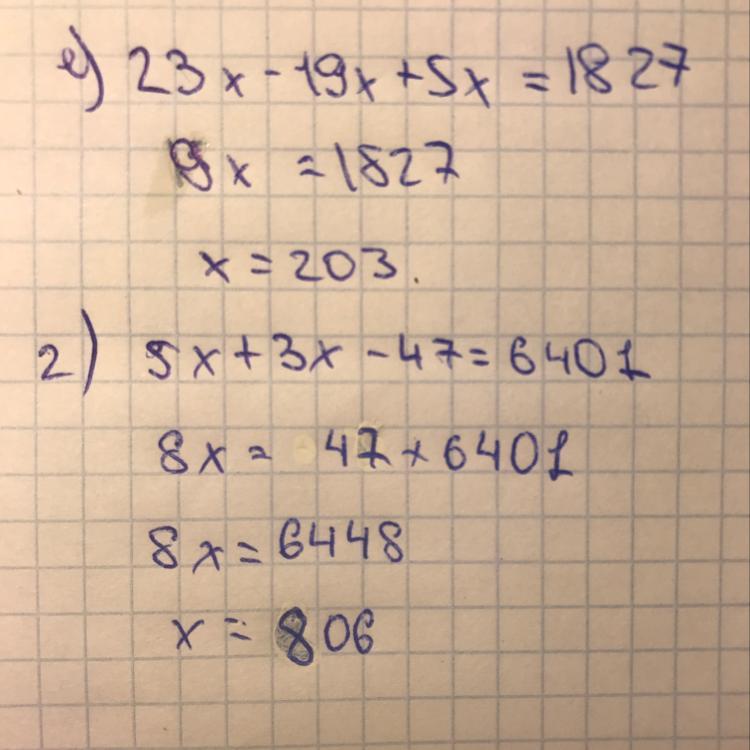 е) 23x - 19x + 5x = 1827
9x = 1827
x = 203.
г) 5x + 3x - 47 = 6401
8x = 47 + 6401
8x = 6448
x = 806